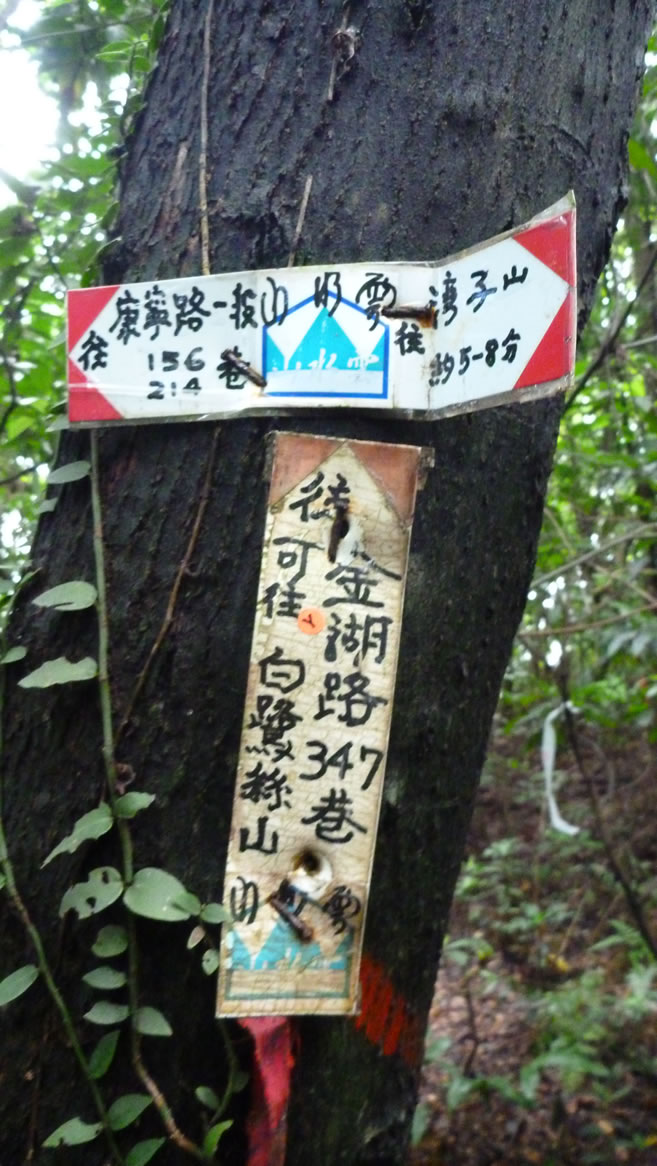 往
康寧路一段
156
214
巷
往
灣子山
約5-8分
往
金湖路347巷
可往
白鷺鷥山